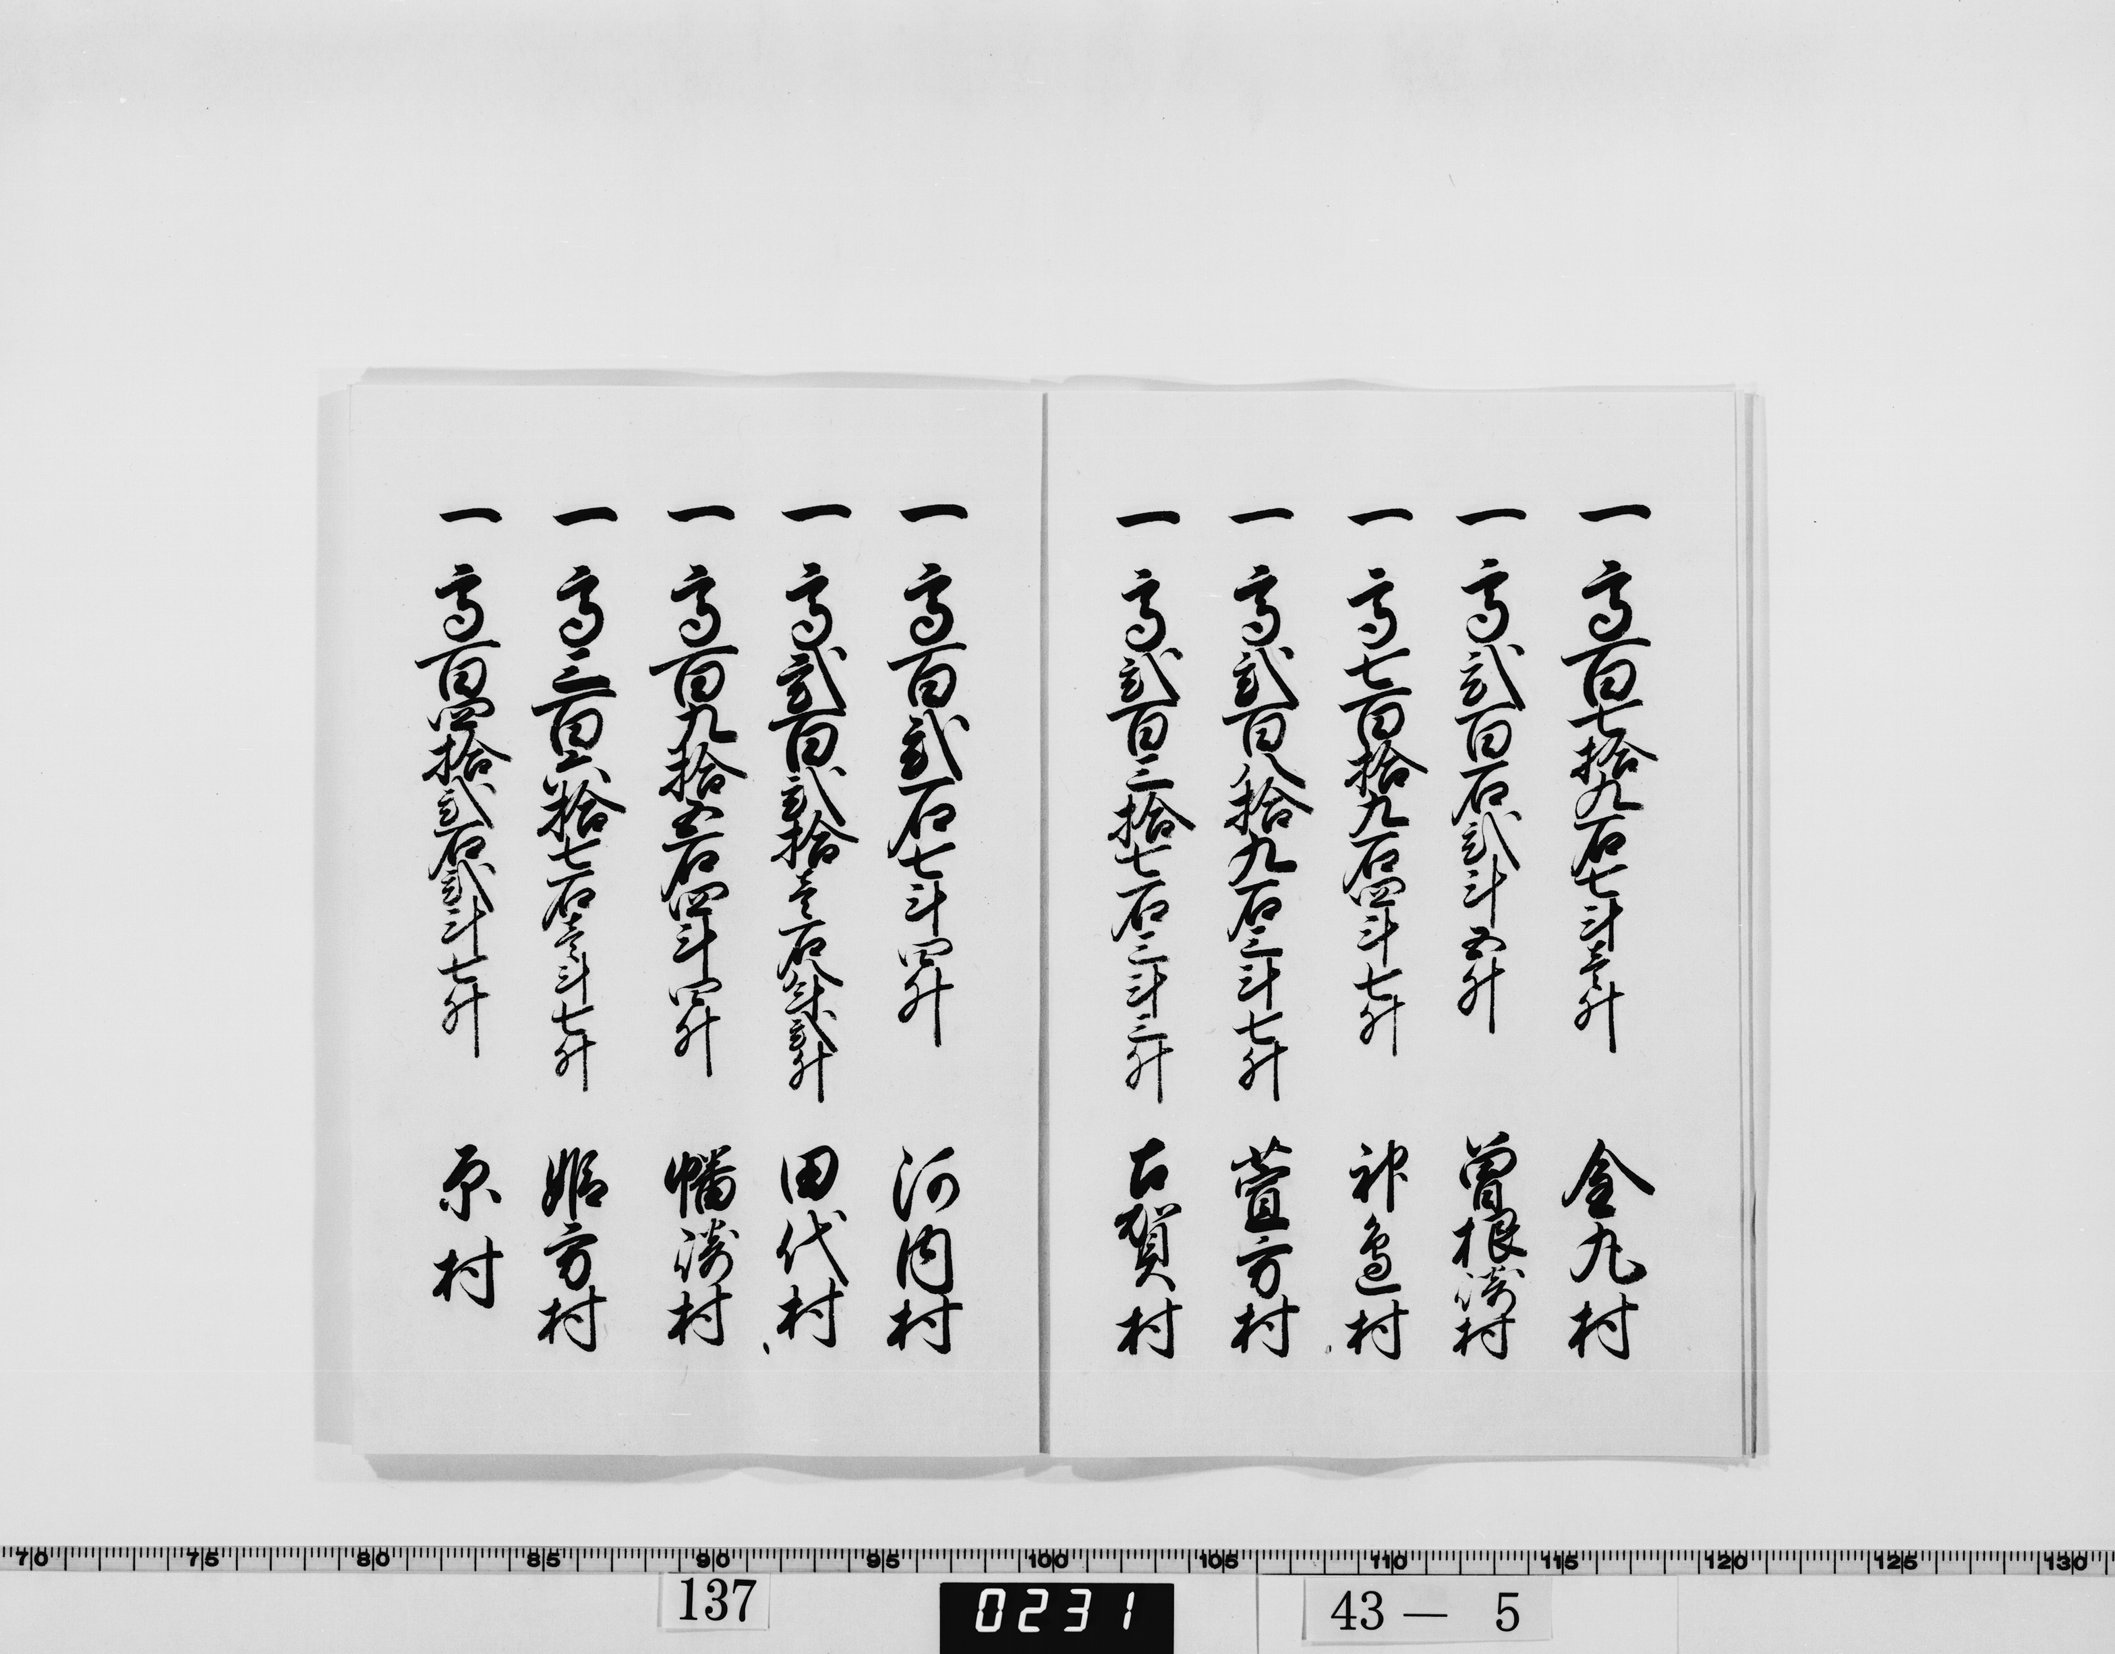 一高百七拾九石七斗壱升　金丸村
一高弐百石弐斗五升　曽根崎村
一高七百拾九石四斗七升　神辺村
一高弐百八拾九石三斗七升　萱方村
一高弐百三拾七石三斗三升　古賀村
一高百弐石七斗四升　河内村
一高弐百弐拾壱石八斗弐升　田代村
一高百九拾五石四斗四升　幡崎村
一高三百六拾七石壱斗七升　姫方村
一高百四拾弐石弐斗七升　原村
70 75 80 85 90 95 100 105 110 115 120 125 130
137
0231
43— 5